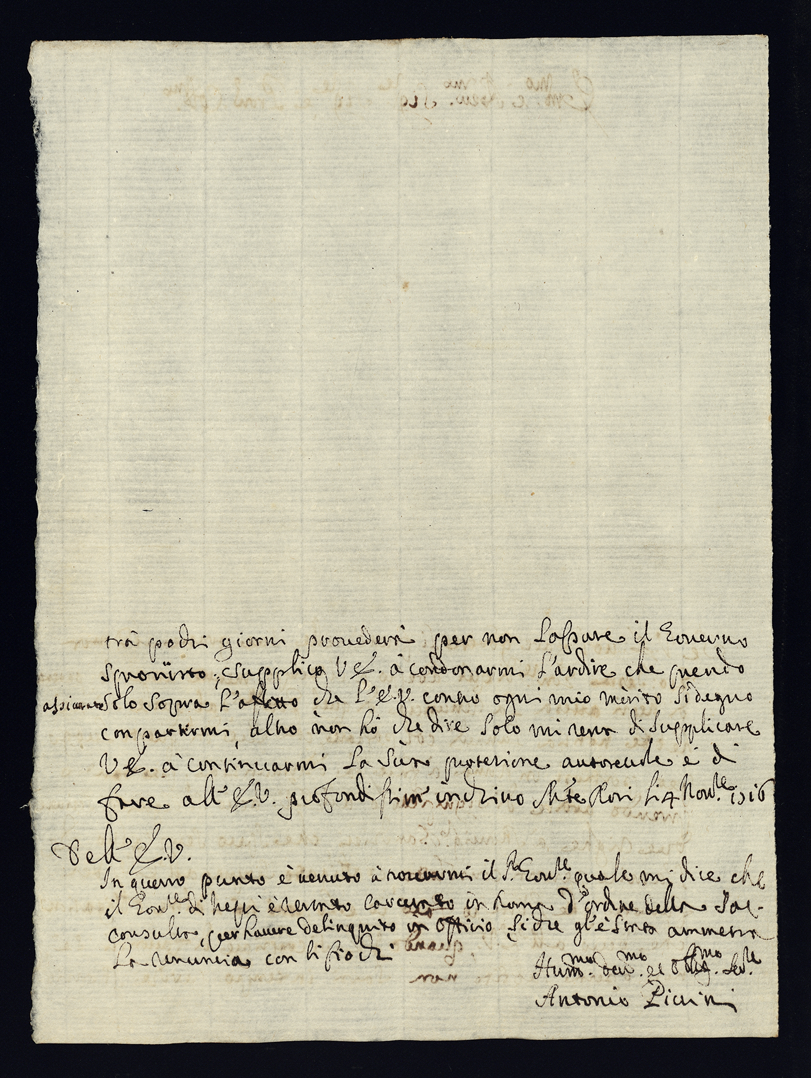 trà pochi giorni provederà per non lassare il Governo
sprovisto, e supplico V.E. à condonarmi l'ardire che prendo
solo sopra l'affetto che l'E.V. contro ogni mio merito si degno
conpartirmi, altro non hò che dire solo mi resta di supplicare
V.E. à continuarmi la sua protetione autorevole e di
fare all'E.V. profondissim inchino Mte Rosi li 4 Novre 1716
Dell'E.V.
In questo punto è venuto à trovarmi il Sr Govre quale mi dice che
il Govre di Nepi è restato carcerato in Roma d'ordine della Sac.
consulta, per havere delinquito in officio, si che gl'è stata ammessa
la renuncia con li fiochi
Hummo. devmo. et obligmo. Serre
Antonio Piccini